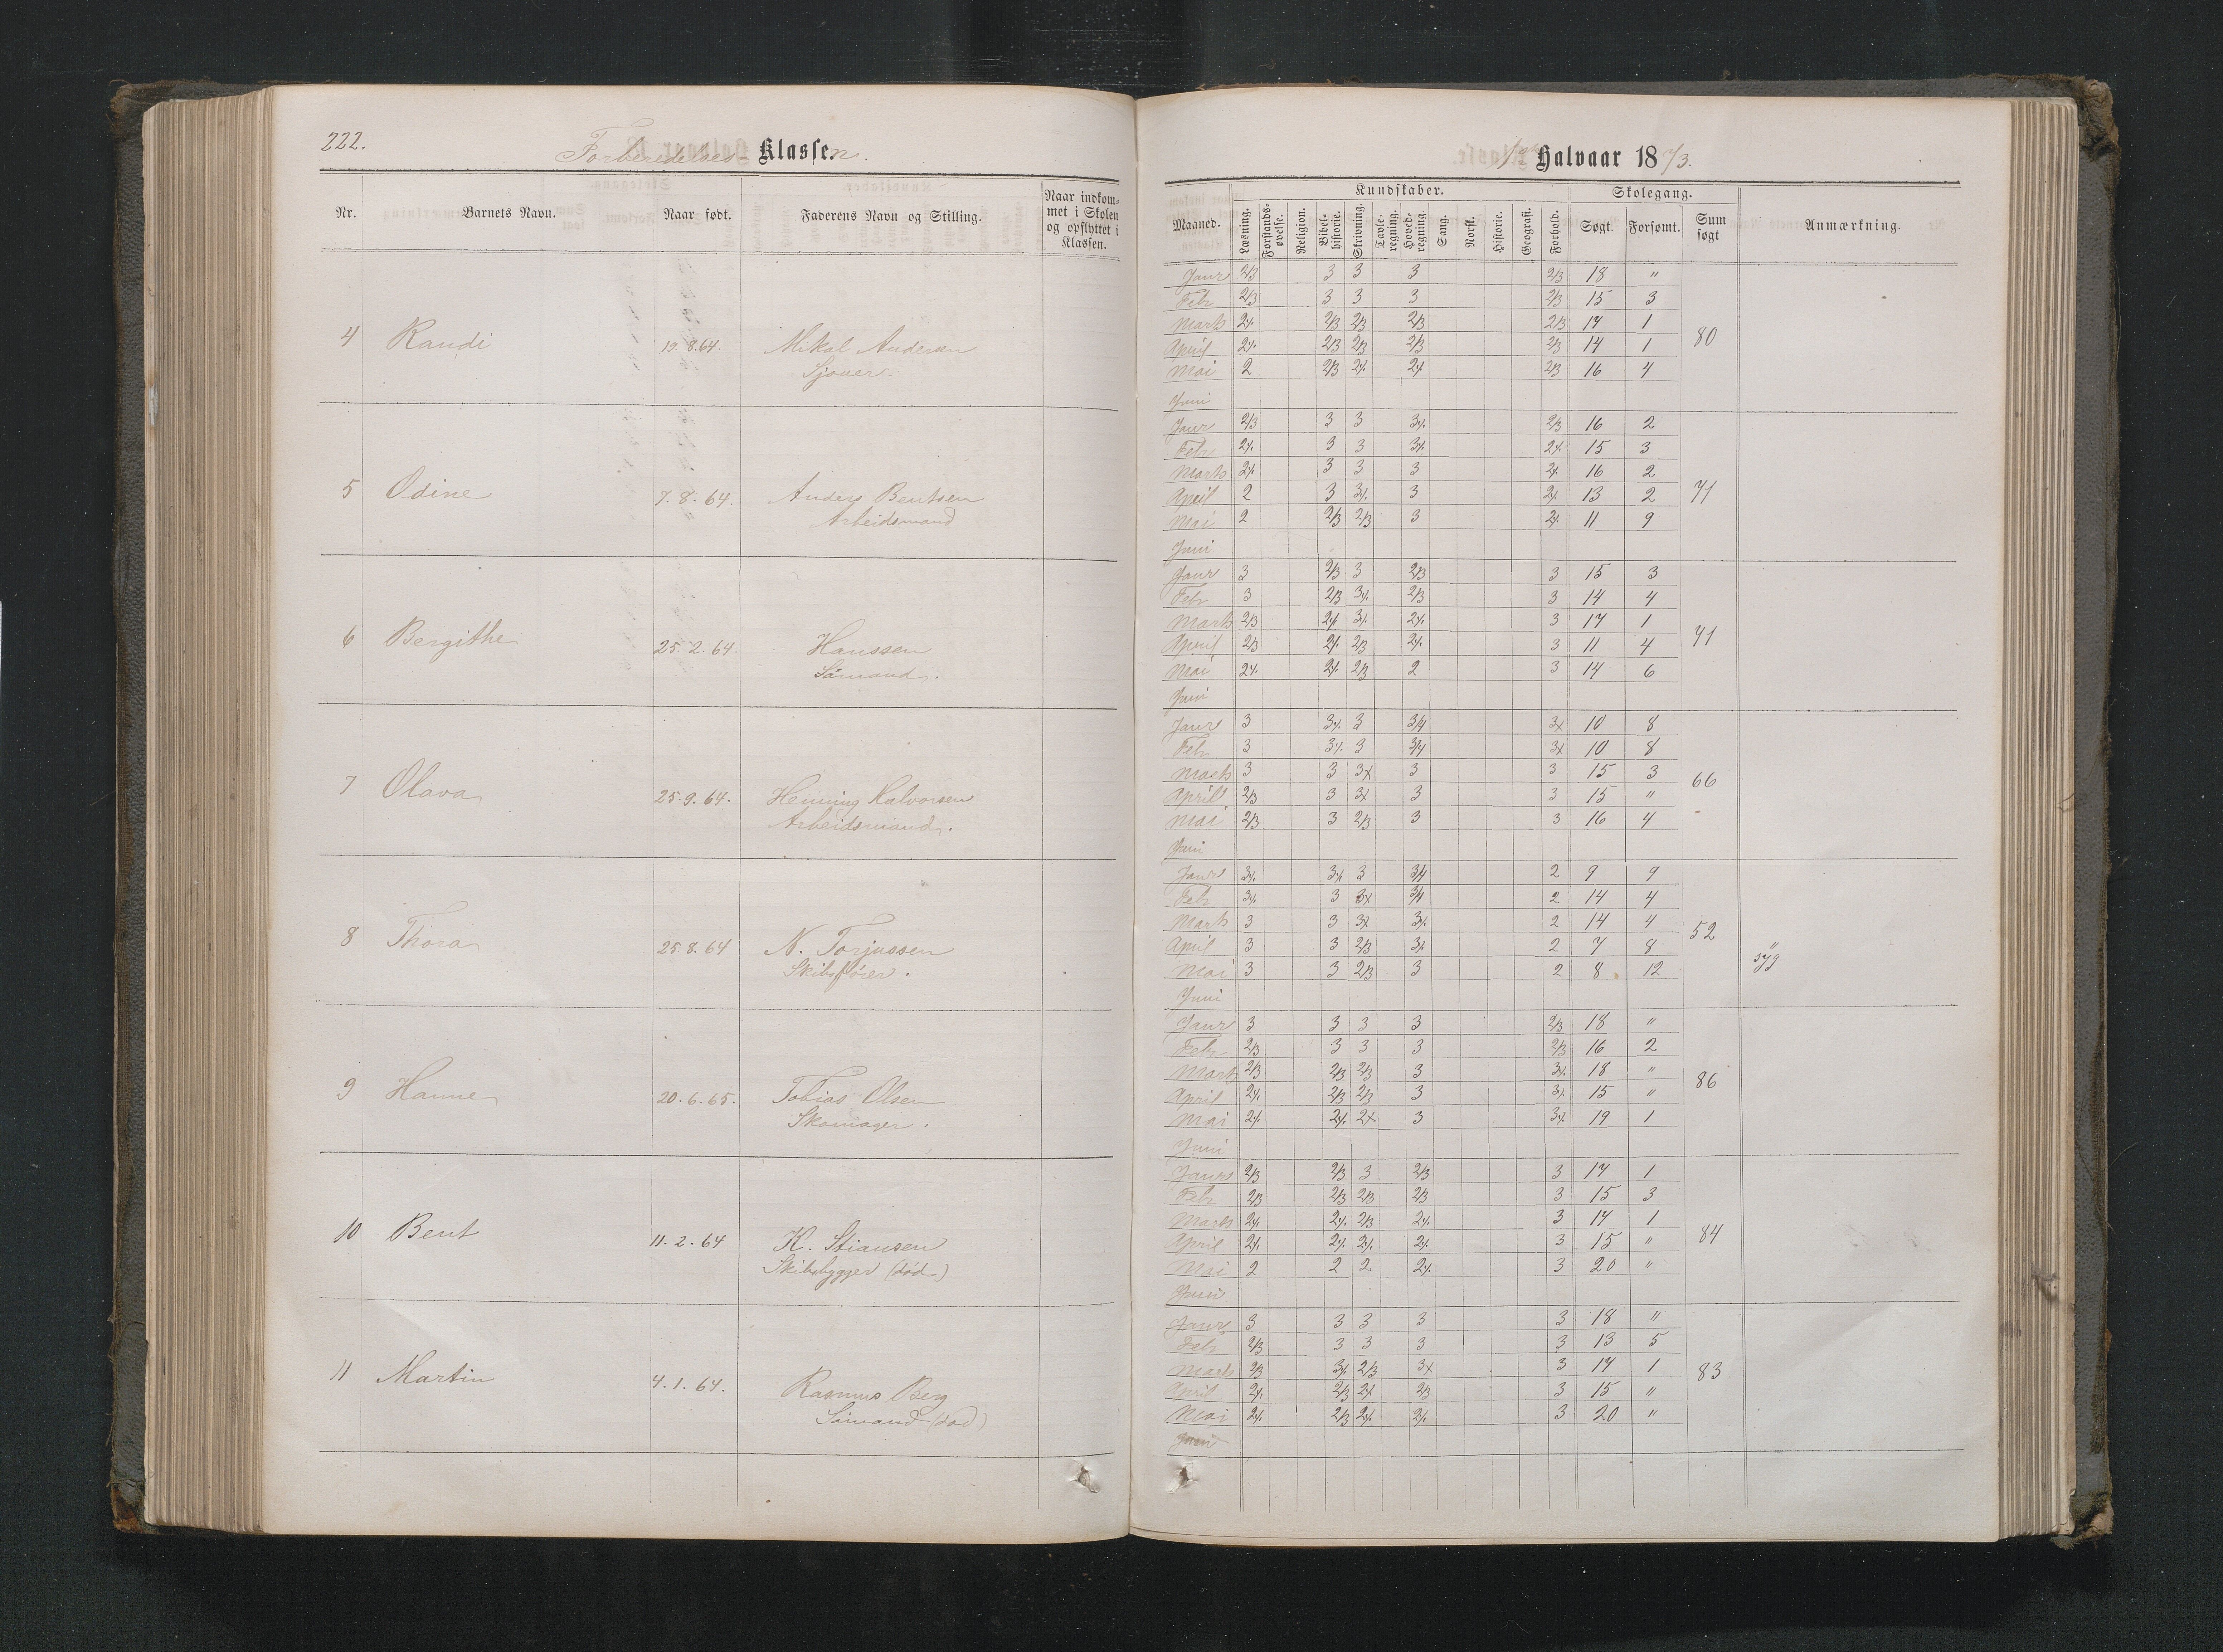 222.
Forberedelses- Klassen.
Nr.
Barnets Navn.
Naar født.
Faderens Navn og Stilling.
Naar indkom-
met i Skolen
og opflyttet i
Klassen.
4 Randi 19.8.64. Mikal Andersen
Sjouer.
5 Odine 7.8.64. Anders Bentsen
Arbeidsmand
6 Bergithe 25.2.64. Hanssen
Sømand.
7 Olava 25.9.64. Henning Halvorsen
Arbeidsmand.
8 Thora 25.8.64 N. Torjussen
Skibsfører.
9 Hanne 20.6.65. Tobias Olsen
Skomager.
10 Bent 11.2.64 K. Stiansen
Skibsbygger (død)
11 Martin 4.1.64. Rasmus Berg
Sømand (død)
1ste Halvaar 1873.
Maaned.
Kundskaber.
Læsning.
Forstands-
øvelse.
Religion.
Bibel-
historie.
Skrivning.
Tavle-
regning.
Hoved-
regning.
Sang.
Norsk.
Historie.
Geografi.
Forhold.
Skolegang.
Søgt.
Forsømt.
Sum
søgt
Anmærkning.
Janr 2/3 3 3 3 2/3 18 "
Feb 2/3 3 3 3 2/3 15 3
Marts 2⁒ 2/3 2/3 2/3 2/3 17 1
April 2⁒ 2/3 2/3 2/3 2/3 14 1
80
Mai 2 2/3 2⁒ 2⁒ 2/3 16 4
Juni
Janr 2/3 3 3 3⁒ 2/3 16 2
Feb 2⁒ 3 3 3⁒ 2⁒ 15 3
Marts 2⁒ 3 3 3 2⁒ 16 2
April 2 3 3⁒ 3 2⁒ 13 2
71
Mai 2 2/3 2/3 3 2⁒ 11 9
Juni
Janr 3 2/3 3 2/3 3 15 3
Feb 3 2/3 3⁒ 2/3 3 14 4
Marts 2/3 2⁒ 3⁒ 2⁒ 3 17 1
April 2/3 2⁒ 2/3 2⁒ 3 11 4
71
Mai 2⁒ 2⁒ 2/3 2 3 14 6
Juni
Janr 3 3⁒ 3 3/4 3x 10 8
Feb 3 3⁒ 3 3/4 3x 10 8
Marts 3 3 3x 3 3 15 3
66
April 2/3 3 3x 3 3 15 "
Mai 2/3 3 2/3 3 3 16 4
Juni
Janr 3⁒ 3⁒ 3 3/4 2 9 9
Feb 3⁒ 3 3x 3/4 2 14 4
Marts 3 3 3x 3⁒ 2 14 4
52
April 3 3 2/3 3⁒ 2 7 8 "
Mai 3 3 2/3 3 2 8 12 syg
Juni
Janr 3 3 3 3 2/3 18 "
Feb 2/3 3 3 3 2/3 16 2
Marts 2/3 2/3 2/3 3 3⁒ 18 "
86
April 2⁒ 2/3 2/3 3 3⁒ 15 "
Mai 2⁒ 2⁒ 2x 3 3⁒ 19 1
Juni
Janr 2/3 2/3 3 2/3 3 17 1
Feb 2/3 2/3 2/3 2/3 3 15 3
Marts 2⁒ 2⁒ 2/3 2⁒ 3 17 1
84
April 2⁒ 2⁒ 2⁒ 2⁒ 3 15 "
Mai 2 2 2 2⁒ 3 20 "
Juni
Janr 3 3 3 3 3 18 "
Feb 2/3 3 3 3 3 13 5
Marts 2/3 3⁒ 2/3 3x 3 17 1
83
April 2⁒ 2/3 2x 2/3 3 15 "
Mai 2⁒ 2/3 2⁒ 2⁒ 3 20 "
Juni